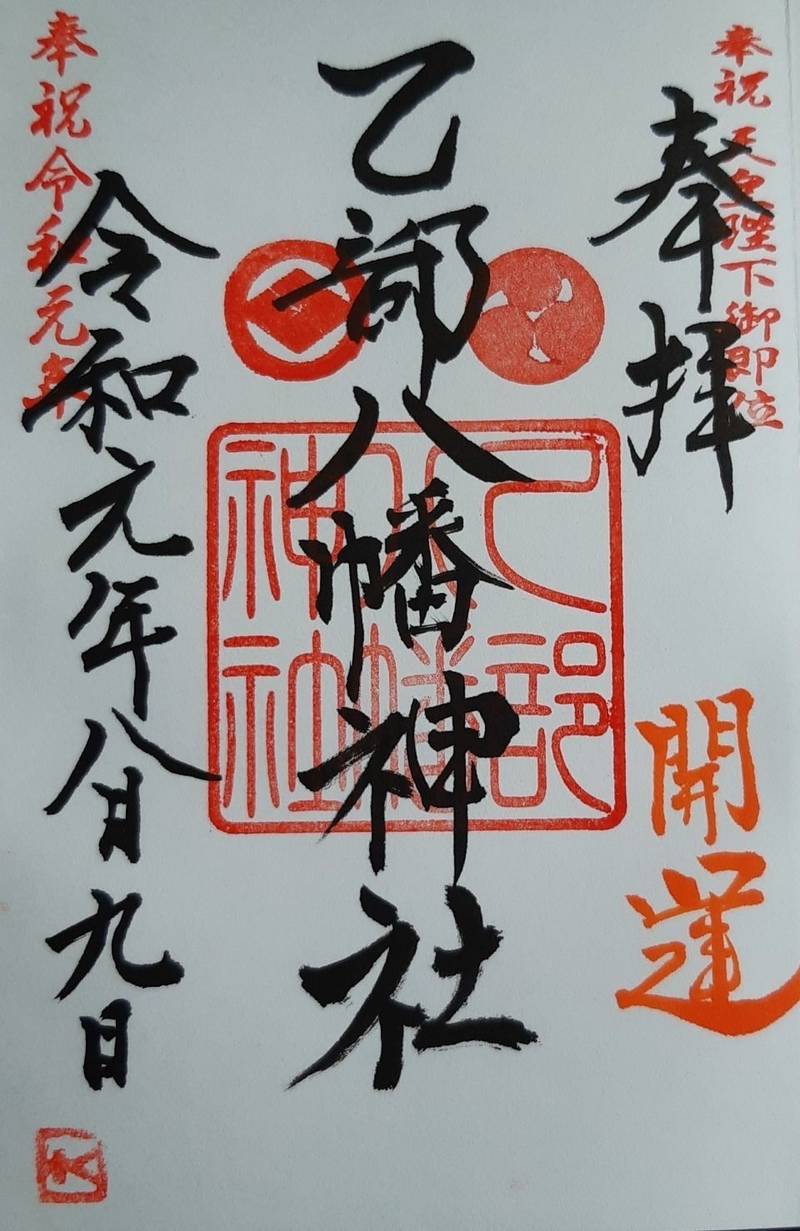 奉祝 天皇陛下御即位
奉拝
開運
乙部八幡神社
乙部
八幡
神社
令和元年八月九日
奉祝 令和元年